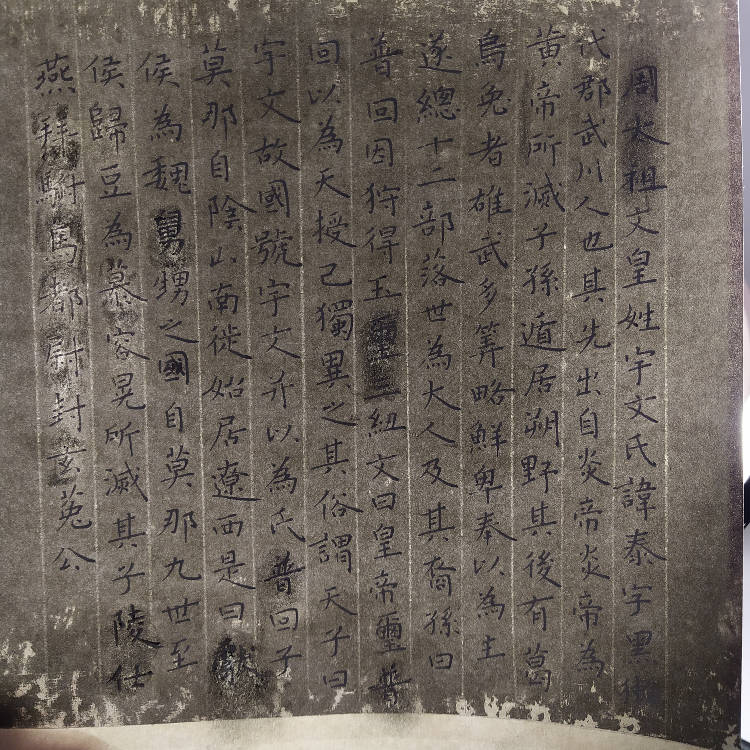 周太祖文皇姓宇文氏諱泰字黑獺
代郡武川人也其先出自炎帝炎帝為
黃帝所滅子孫遁居朔野其後有葛
烏兔者雄武多筭略鮮卑奉以為主
遂總十二部落世為大人及其裔孫曰
普回因狩得玉璽三紐文曰皇帝璽普
回以為天授己獨異之其俗謂天子曰
宇文故國號宇文并以為氏普回子
莫那自陰山南徙始居遼西是曰獻
侯為魏舅甥之國自莫那九世至
侯歸豆為慕容晃所滅其子陵仕
燕拜駙馬都尉封玄菟公